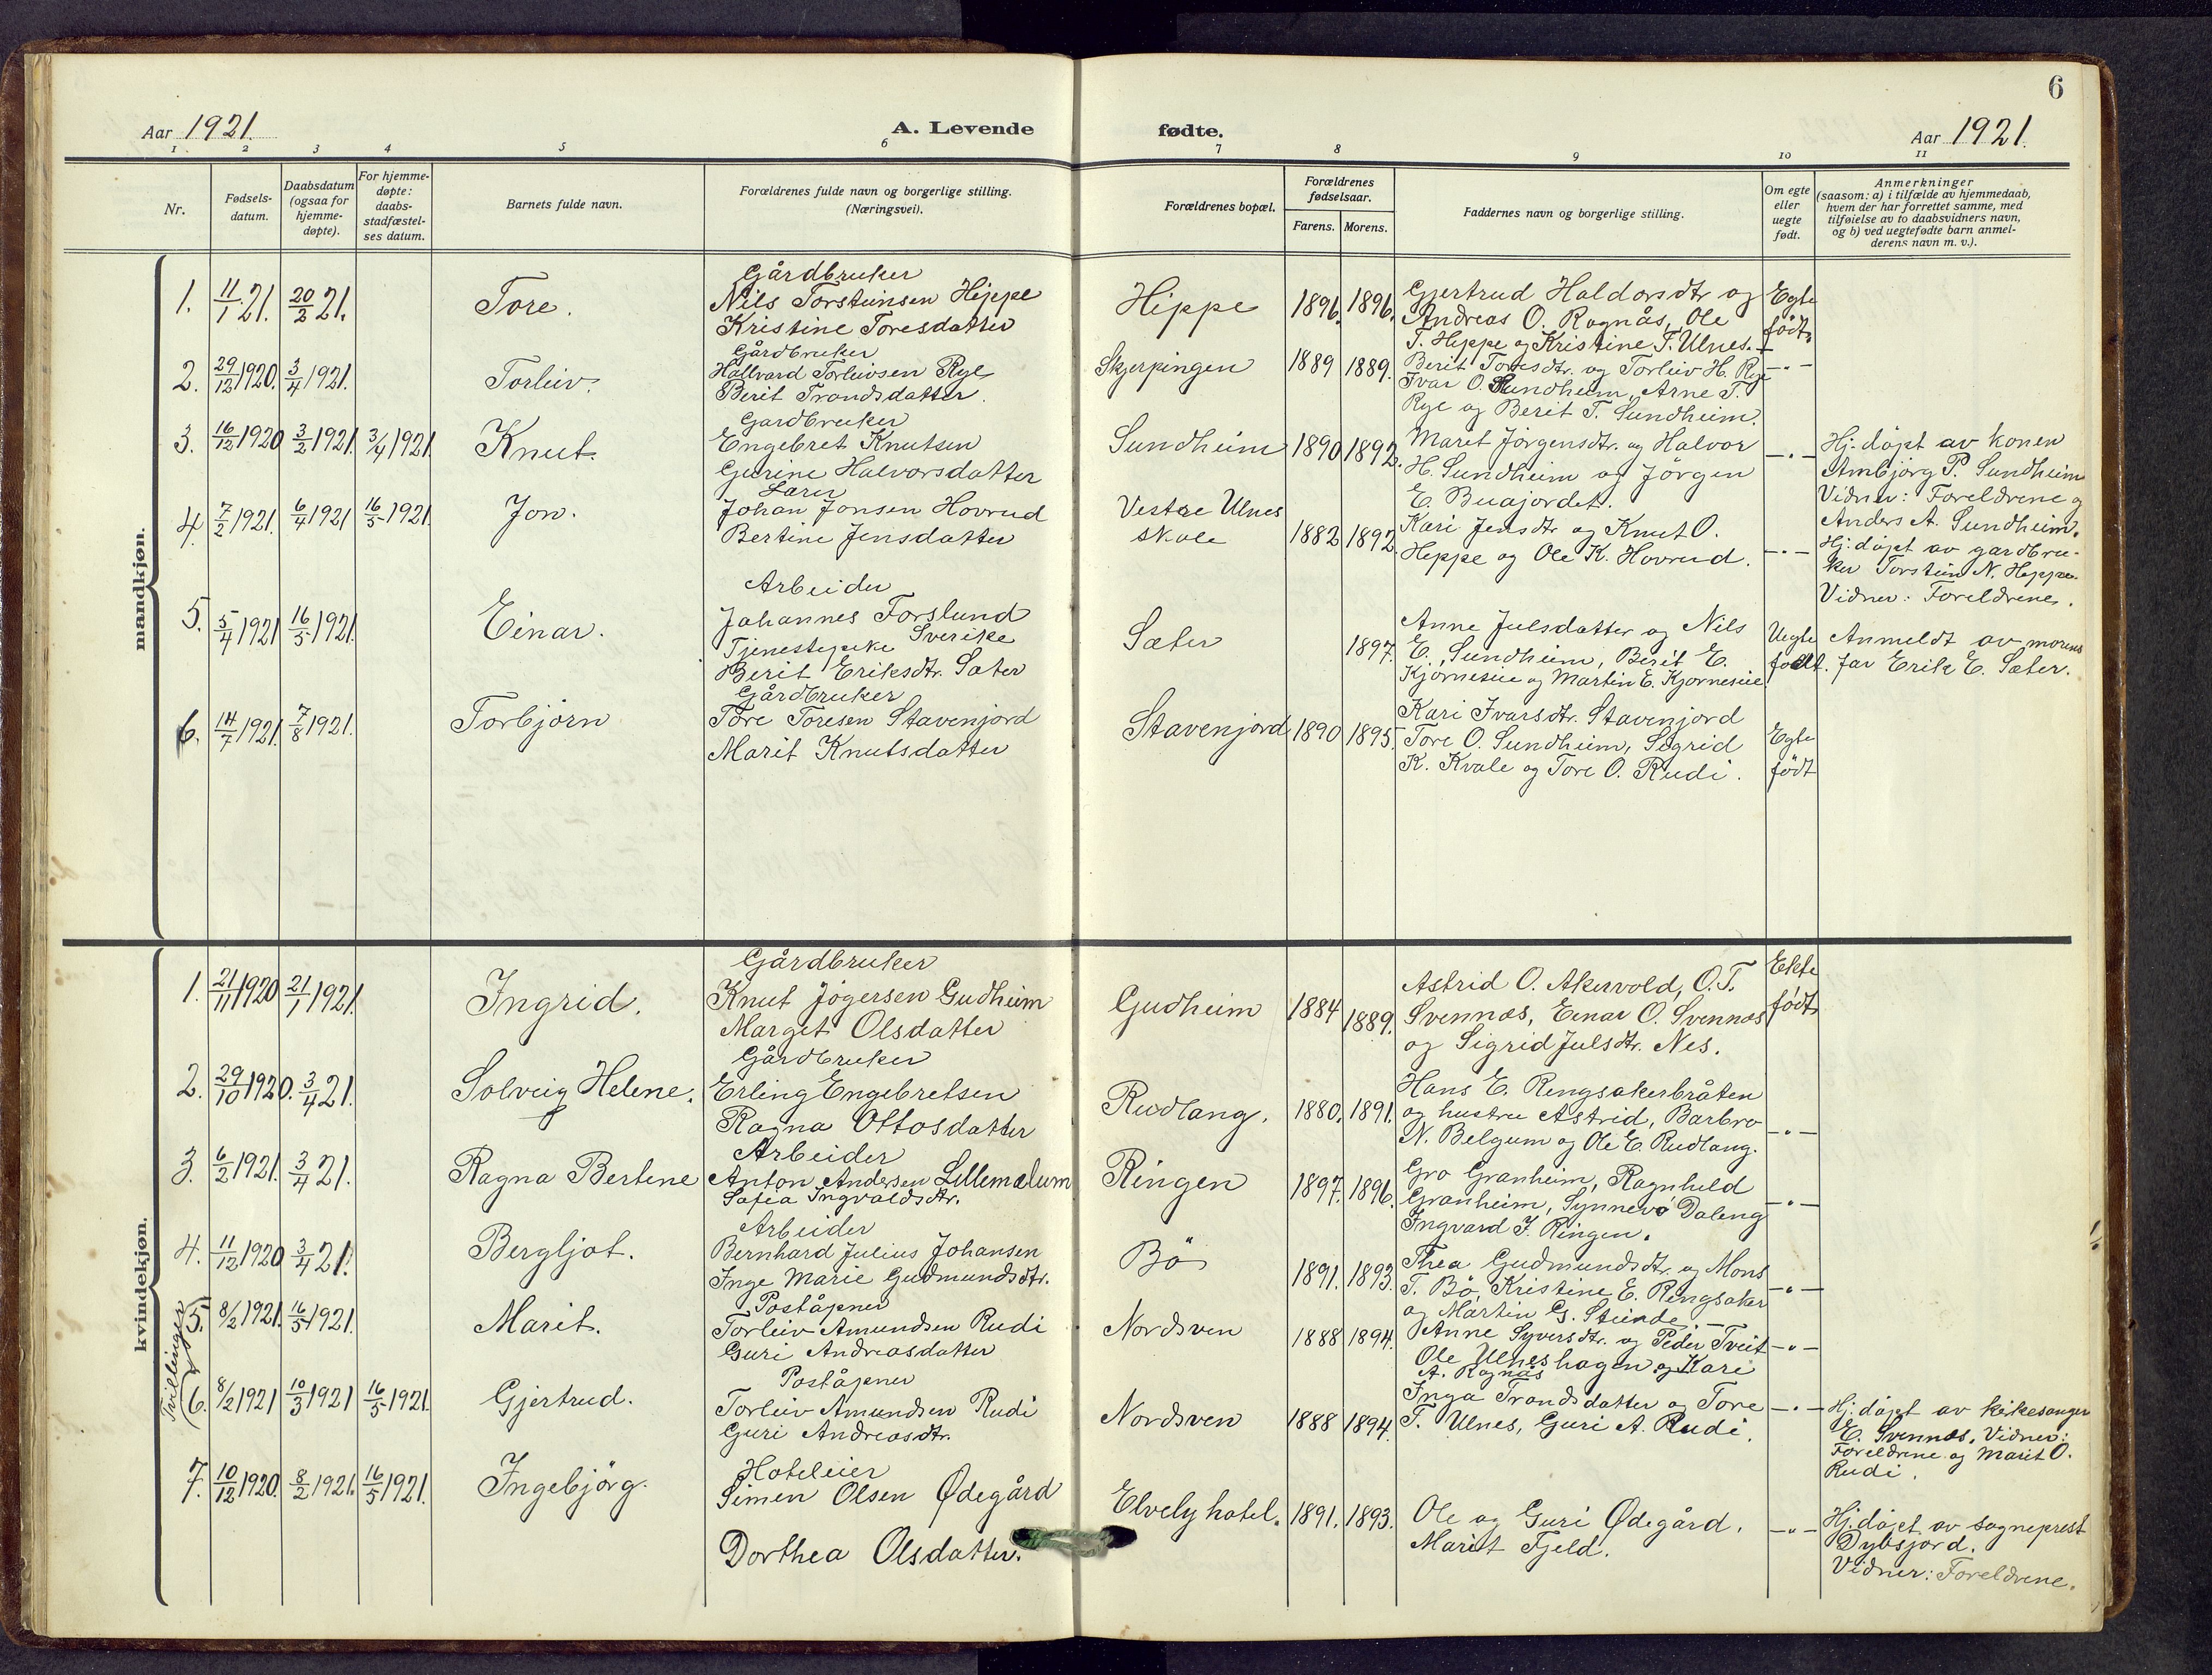 6
Aar 1921.
A. Levende
fødte.
Aar 1921.
1 2 3 4 5 6 7 8 9 10 11
Nr.
Fødsels-
datum.
Daabsdatum
(ogsaa for
hjemme-
døpte).
For hjemme-
døpte:
daabs-
stadfæstel-
ses datum.
Barnets fulde navn.
Forældrenes fulde navn og borgerlige stilling.
(Næringsvei).
Forældrenes bopæl.
Forældrenes
fødselsaar.
Farens. Morens.
Faddernes navn og borgerlige stilling.
Om egte
eller
uegte
født.
Anmerkninger
(saasom: a) i tilfælde av hjemmedaab,
hvem der har forrettet samme, med
tilføielse av to daabsvidners navn,
og b) ved uegtefødte barn anmel-
derens navn m. v.).
mandkjøn.
1. 11/1 21. 20/2 21.
Tore.
Gårdbruker
Nils Torsteinsen Hippe
Kristine Toresdatter
Hippe
1896. 1896.
Gjertrud Haldorsdtr og
Andreas O. Ragnås, Ole
T. Hippe og Kristine T. Ulnes.
Egte
født.
2. 29/12 1920. 3/4 1921.
Torleiv.
Gårdbruker
Hallvard Torleivsen Rye
Berit Trondsdatter.
Skjerpingen
1889 1889.
Berit Toresdtr. og Torleiv H. Rye
Ivar O. Sundheim, Arne T.
Rye og Berit T. Sundheim.
-"-
3. 16/12 1920 3/2 1921. 3/4 1921.
Knut.
Gardbruker
Engebret Knutsen
Gurine Halvorsdatter
Sundheim
1890 1892.
Marit Jörgensdtr. og Halvor
H. Sundheim og Jörgen
E. Buajordet.
-"-
Hj. döpt av konen
Ambjörg P. Sundheim
Vidner: Foreldrene og
Anders A. Sundheim.
4. 7/2 1921. 6/4 1921 16/5 1921.
Jon.
Lærer
Johan Jonsen Hovrud
Bertine Jensdatter
Vestre Ulnes
skole
1882 1892.
Kari Jensdtr og Knut O.
Hippe og Ole K. Hovrud.
-"-
Hj. döpt av gardbru-
ker Torstein N. Hippe.
Vidner: Foreldrene.
5. 5/4 1921 16/5 1921.
Einar.
Arbeider
Johannes Forslund
Sverike
Tjenestepike
Berit Eriksdtr. Sæter
Sæter
1897.
Anne Julsdatter og Nils
E. Sundheim, Berit E.
Kjörneseie og Martin E. Kjörneseie
Uegte
født.
Anmeldt av morens
far Erik E. Sæter.
6. 14/7 1921. 7/8 1921.
Torbjörn
Gårdbruker
Tore Toresen Stavenjord
Marit Knutsdatter
Stavenjord
1890 1895.
Kari Ivarsdtr. Stavenjord
Tore O. Sundheim, Sigrid
K. Kvale og Tore O. Rudi.
Egte
født
kvindekjøn.
1. 21/11 1920 21/1 1921.
Ingrid.
Gårdbruker
Knut Jögersen Gudheim
Marget Olsdatter
Gudheim
1884 1889.
Astrid O. Akervold, O. T.
Svennæs, Einar O. Svennæs
og Sigrid Julsdtr. Nes.
Ekte
født
2. 29/10 1920. 3/4 21.
Solveig Helene.
Gårdbruker
Erling Engebretsen
Ragna Ottosdatter
Rudlang.
1880. 1891.
Hans E. Rengsakerbråten
og hustru Astrid, Barbro
N. Belgum og Ole E. Rudlang.
-"-
3. 6/2 1921. 3/4 21.
Ragna Bertine
Arbeider
Anton Andersen Lillemælum
Sofia Ingvaldsdtr.
Ringen
1897. 1896.
Gro Granheim, Ragnhild
Granheim, Synnevö Daleng
Ingvard I. Ringen.
-"-
4. 11/12 1920 3/4 21.
Bergljot.
Arbeider
Bernhard Julius Johansen
Inge Marie Gudmundsdtr.
Bö
1891. 1893.
Thea Gudmundsdtr. og Mons
T. Bö, Kristine E. Rengsaker
og Martin G. Steinde.
-"-
Tvillinger
5. 8/2 1921. 16/5 1921.
Marit.
Poståpner
Torleiv Amundsen Rudi
Guri Andreasdatter
Nordsven
1888 1894.
Anne Syversdtr. og Peder Tveit
Ole Ulneshagen og Kari
A. Ragnås
-"-
6. 8/2 1921 10/3 1921 16/5 1921.
Gjertrud.
Poståpner
Torleiv Amundsen Rudi
Guri Andreasdtr.
Nordsven
1888 1894.
Inga Trondsdatter og Tore
T. Ulnes, Guri A. Rudi.
-"-
Hj. döpt av kikesanger
E. Svennæs, Vidner:
Foreldrene og Marit O.
Rudi.
7. 10/12 1920. 8/2 1921. 16/5 1921.
Ingebjörg.
Hoteleier
Simen Olsen Ødegård
Dorthea Olsdatter.
Elvely hotel.
1891. 1893.
Ole og Guri Ødegård.
Marit Fjeld.
-"-
Hj. döpt av sogneprest
Dybsjord.
Vidner: Foreldrene.